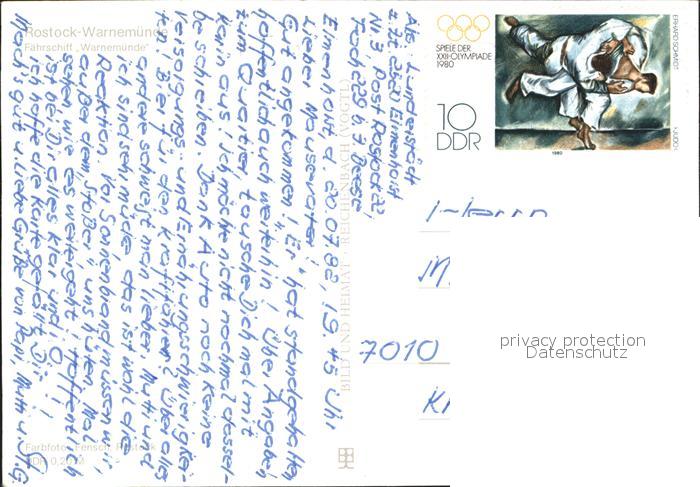 Rostock-Warnemünde
Fährschiff "Warnemünde"
SPIELE DER
XXII. OLYMPIADE
1980
10
DDR
ERHARD SCHMIDT
"JUDO"
1980
Abs.: Lindenstädt
z. Zt. 2520 Elmenhorst
Nr. 3, Post Rostock 22
Elmenhorst d. 20.07.82, 19.45 Uhr
Lieber Mausevater!
Gut angekommen! "Er" hat standgehalten
hoffentlich auch weiterhin! Über Angaben
zum Quartier tausche Dich mal mit
Karin aus! Ich möchte nicht nochmal dassel-
be schreiben. Dank Auto noch keine
Versorgungs- und Ernährungsschwierigkei-
ten Bier für den Kraftfahrer! Über alles
andere schweigt man lieber. Mutti und
ich sind sehr müde, das ist wohl die
Reaktion. Vor Sonnenbrand müssen wir
außer dem "Stößer" uns hüten. Mal
sehen wie es weitergeht! Hoffentlich
ist bei Dir alles klar und i. O.!
Ich hoffe die Karte gefällt Dir!
Mach's gut u. liebe Grüße von Papi, Mutti u.
7010
BILD UND HEIMAT · REICHENBACH (VOGTL)
privacy protection
Datenschutz
Farbfoto: Fensch, Rostock